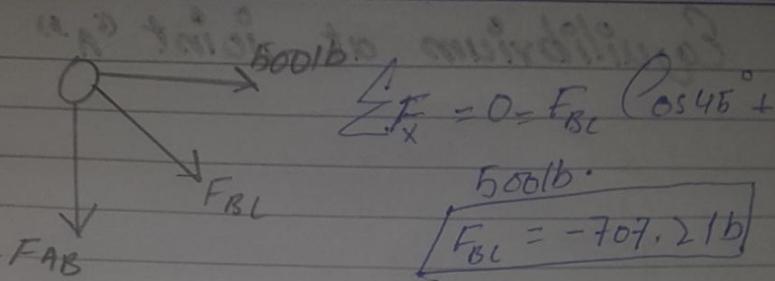 500lb.
F_BC
F_AB
ΣF_x = 0 = F_BC Cos45° +
500lb.
F_BC = -707.2lb